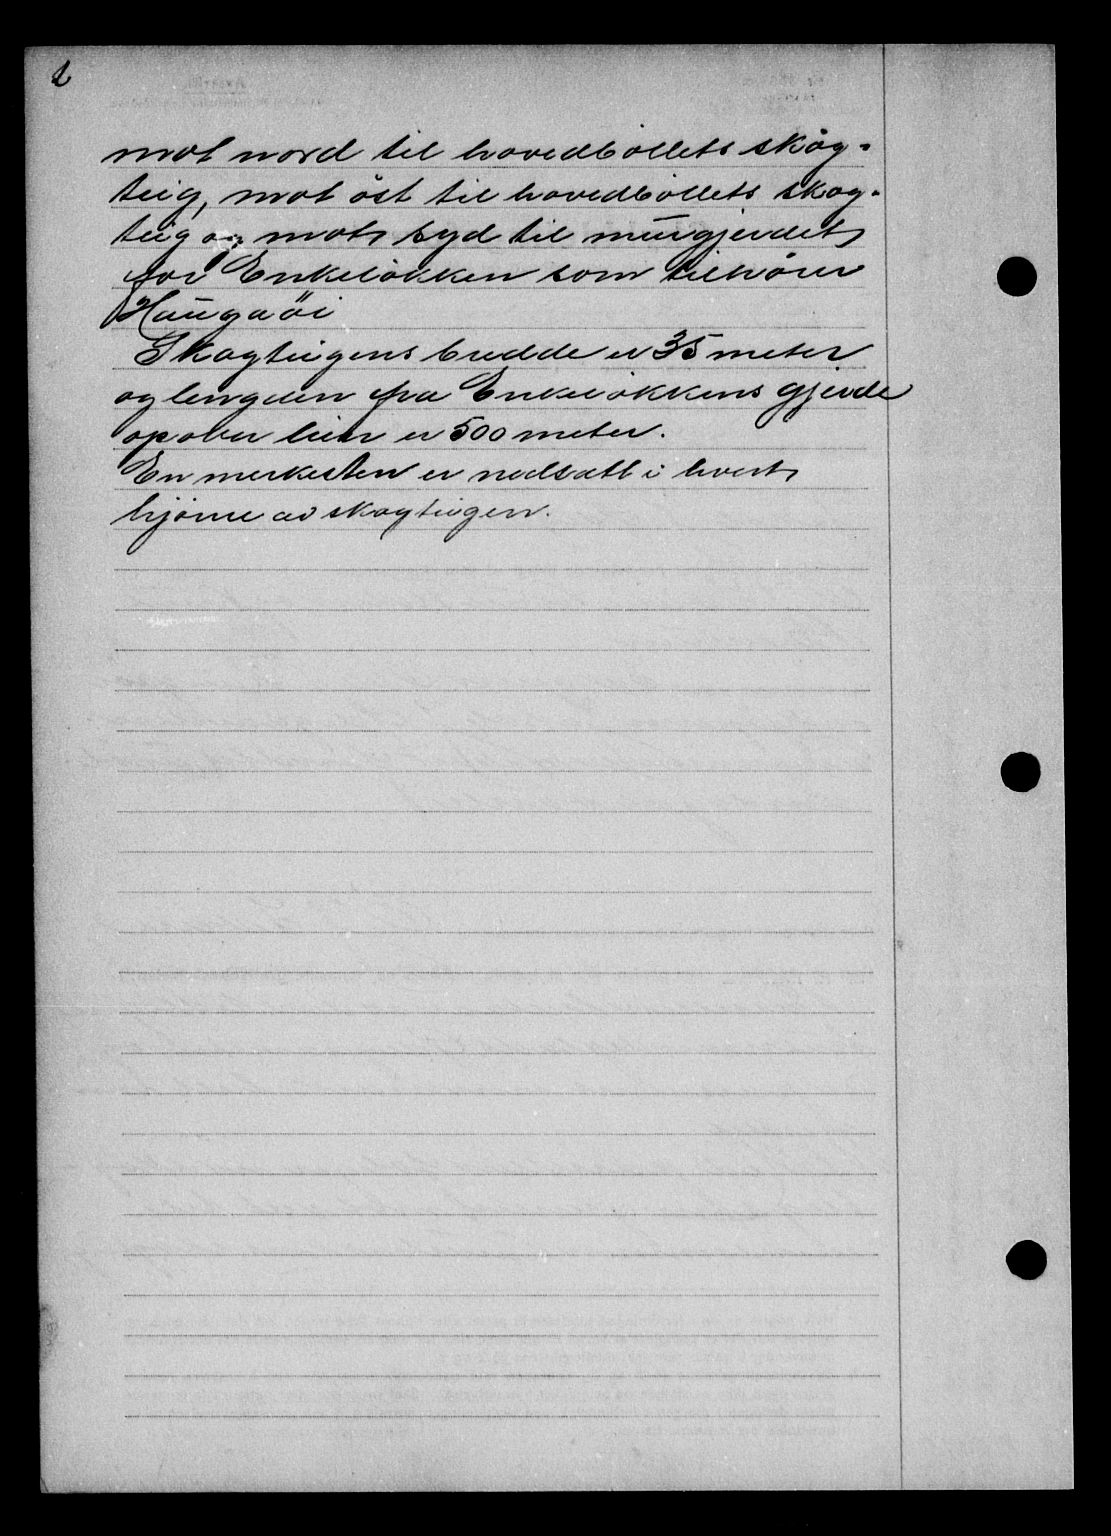 2
mot nord til hovedbøllets skog-
teig, mot öst til hovedböllets skog-
teig og mot syd til mürgjerdet
for Enkeløkken som tilhører
Haugaöi
Skogteigens bredde er 35 meter
og lengden fra Enkeløkkens gjerde
opover lien er 500 meter.
En merkesten er nedsatt i hvert
hjørne av skogteigen.